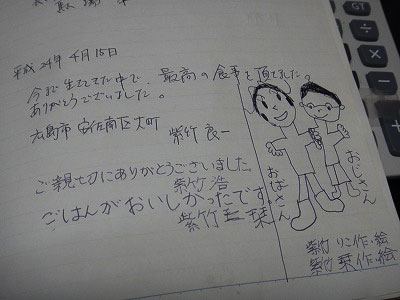 平成24年4月15日
今まで生きてきた中で、最高の食事を頂きました。
ありがとうございました。
広島市安佐南区大町
紫竹良一
ご親切にありがとうございました
紫竹浩
ごはんがおいしかったです
紫竹 栞
おばさん
おじさん
紫竹りこ作・絵
紫竹栞作・絵
GT